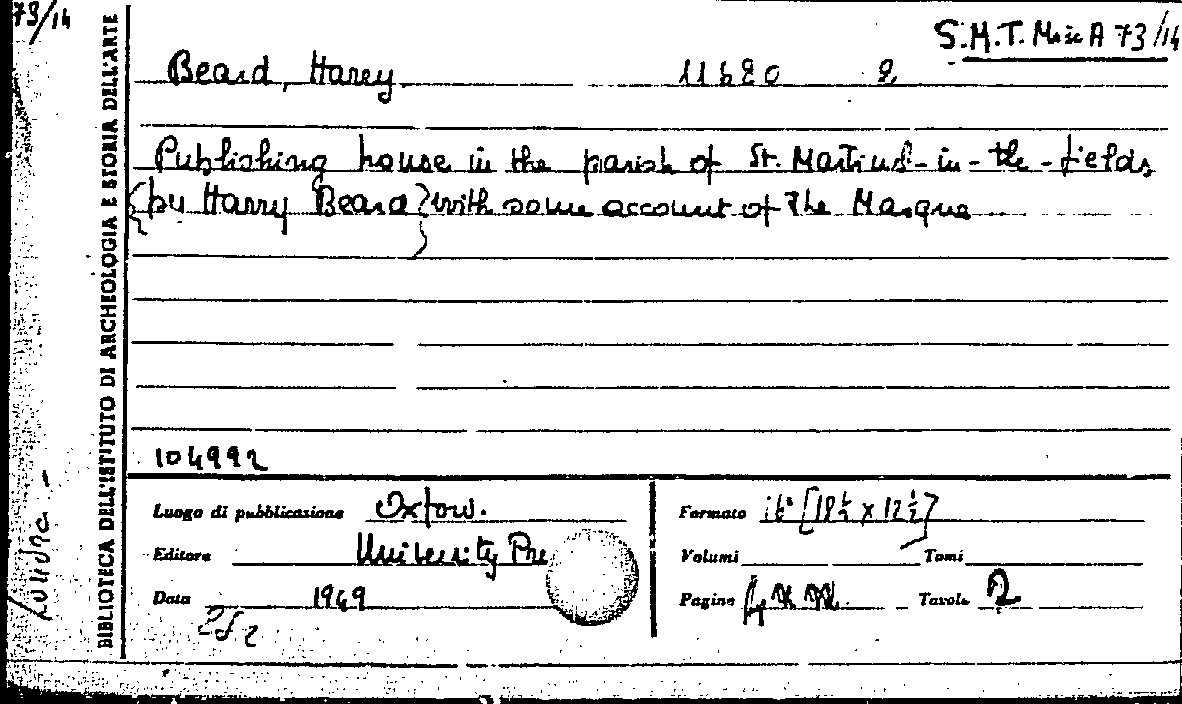 73/14
S.M.T. Misc A 73/14
Beard, Harry 11620 2
Publishing house in the parish of St. Martins-in-the-fields,
[by Harry Beard] with some account of The Masque
104992
Luogo di pubblicazione Oxford.
Editore University Pre
Data 1949
Formato 16° [18½ x 12½]
Volumi Tomi
Pagine Tavole 2
BIBLIOTECA DELL'ISTITUTO DI ARCHEOLOGIA E STORIA DELL'ARTE
Londra